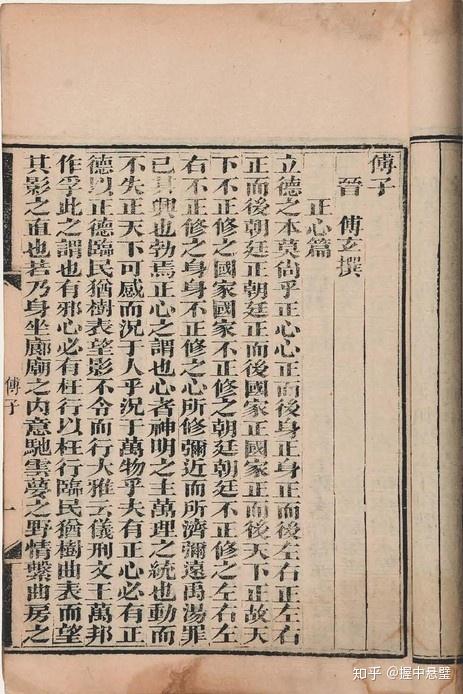 傅子
晉 傅玄撰
正心篇
立德之本莫尙乎正心心正而後身正身正而後左右正左右
正而後朝廷正朝廷正而後國家正國家正而後天下正故天
下不正修之國家國家不正修之朝廷朝廷不正修之左右左
右不正修之身身不正修之心所修彌近而所濟彌遠禹湯罪
己其興也勃焉正心之謂也心者神明之主萬理之統也動而
不失正天下可感而況于人乎況于萬物乎夫有正心必有正
德以正德臨民猶樹表望影不令而行大雅云儀刑文王萬邦
作孚此之謂也有邪心必有枉行以枉行臨民猶樹曲表而望
其影之直也若乃身坐廊廟之內意馳雲夢之野情繫曲房之
傅子
一
知乎 @握中悬璧